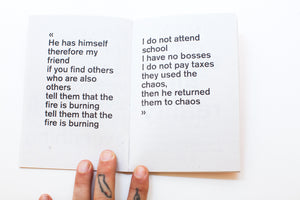 «
He has himself
therefore my
friend
if you find others
who are also
others
tell them that the
fire is burning
tell them that the
fire is burning
I do not attend
school
I have no bosses
I do not pay taxes
they used the
chaos,
then he returned
them to chaos
»